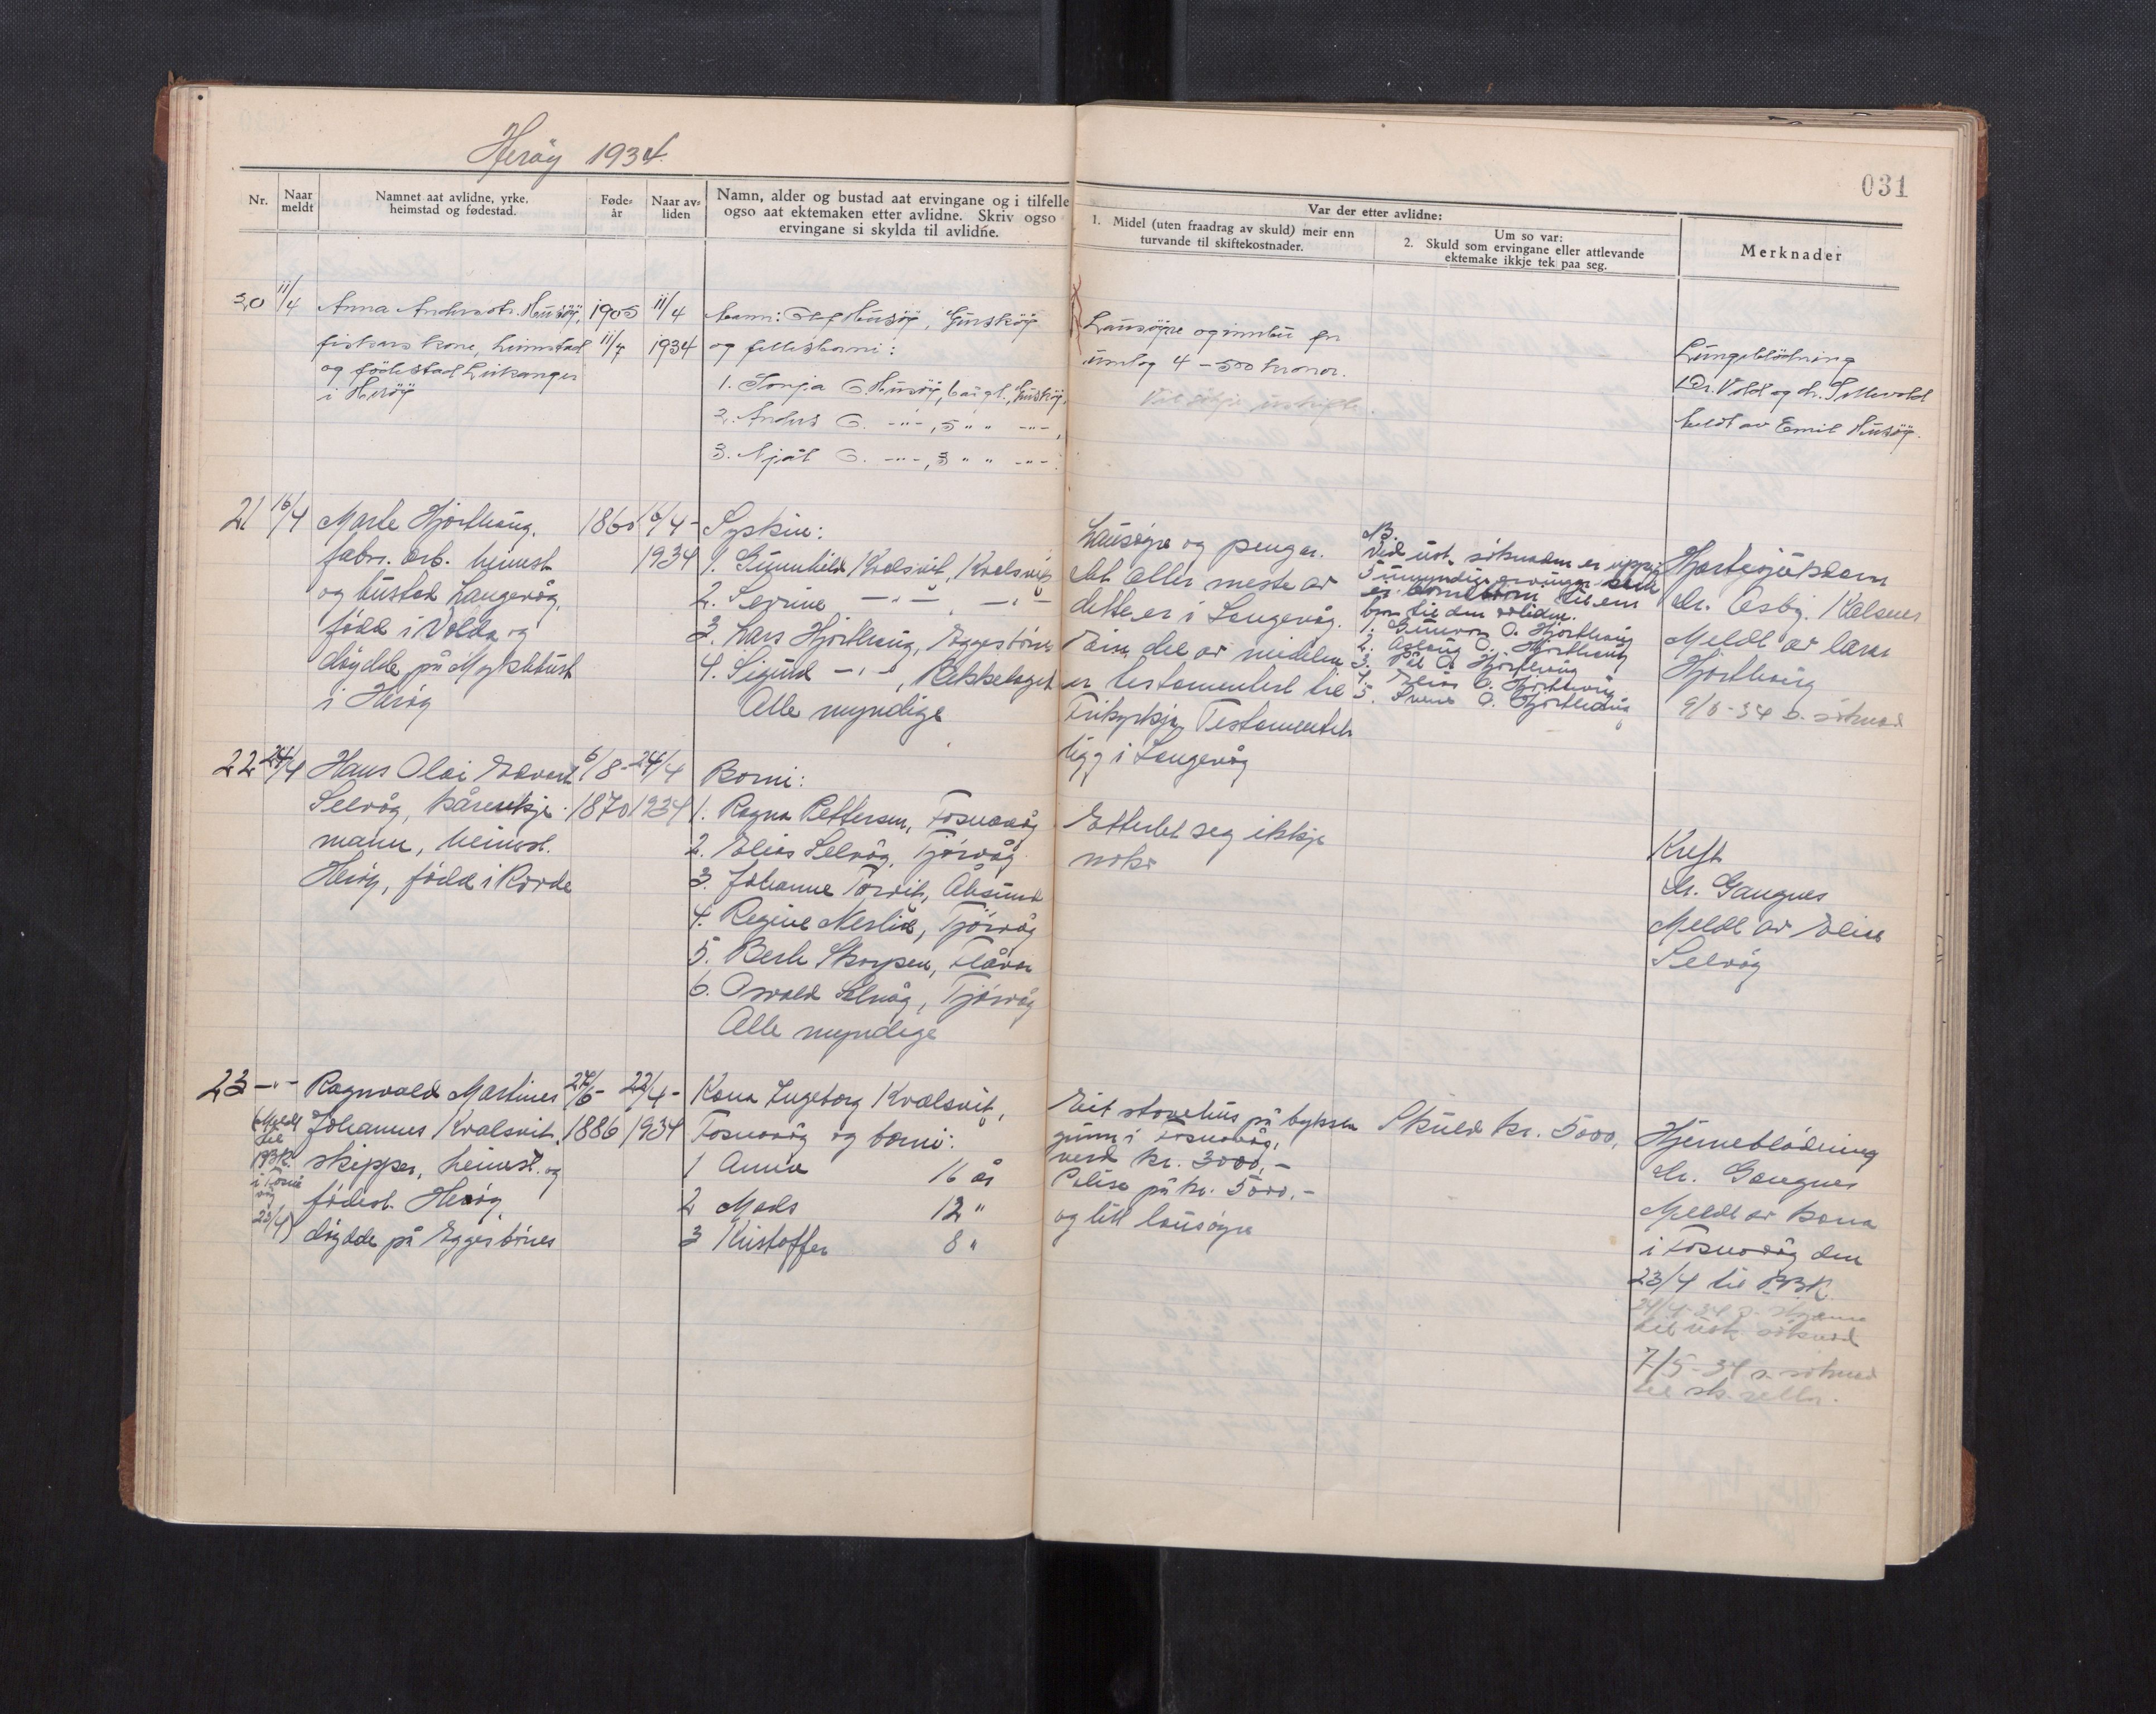 Herøy 1934.
031
Nr.
Naar meldt
Namnet aat avlidne, yrke, heimstad og fødestad.
Føde-år
Naar av-liden
Namn, alder og bustad aat ervingane og i tilfelle
ogso aat ektemaken etter avlidne. Skriv ogso
ervingane si skylda til avlidne.
Var der etter avlidne:
1. Midel (uten fraadrag av skuld) meir enn
turvande til skiftekostnader.
Um so var:
2. Skuld som ervingane eller attlevande
ektemake ikkje tek paa seg.
Merknader
20 11/4 Anna Andersdtr. Husøy, 1905 11/4
fiskars kone, heimstad 11/7 1934
og födestad Leikanger
i Herøy
Mann: Olaf Husøy, Gurskøy
og fellesborni:
1. Sonja O. Husøy, 6 aar gl., Gurskøy,
2. Anders O. -"-, 5 " " -"-,
3. Njål O. -"-, 3 " " -"-.
Lausøyre og innbu for
umlag 4 - 500 kronor.
Lungeblödning
Dr. Vold og dr. Sellevold
Meldt av Emil Husøy.
21 16/4 Marte Hjorthaug,
fabr. arb. heimst
og bustad Langevåg,
född i Volda og
döydde på Myklebust
i Heröy
1860
1934
Syskin:
1. Gunnhild Kvalsvik, Kvalsvik
2. Serine -"- , -"-
3. Lars Hjorthaug, Eggesbönes
4. Sigurd -"-, Bekkelaget
Alle myndige
Lausøyre og pengar.
Det aller meste av
dette er i Langevåg.
Ein del av midelen
er testamentert til
Frikyrkja. Testamentet
ligg i Langevåg
NB.
Ved usk. söknaden er uppgj
5 umyndige ervingar som
er til em
bror til den avlidne.
1. Gunvor O. Hjorthaug
2. Aslaug O. Hjorthaug
3. Pål O. Hjorthaug
4. Elias O. Hjorthaug
5. Svein O. Hjorthaug
Hjartesjukdom
dr. Asbj. Kalsnes
Meldt av lærar
Hjorthaug
9/6-34 s. söknad
22 24/4 Hans Olai Edvard 6/8- 24/4
Selvåg, kårenkje- 1870 1934
mann, heimst.
Heröy, född i Rovde
Borni:
1. Ragna Pettersen, Fosnavåg
2. Elias Selvåg, Tjörvåg
3. Johanne Torvik, Åhsund
4. Regine Nerlid, Tjörvåg
5. Berte Skorpen, Flåvær
6. Osvald Selvåg, Tjörvåg
Alle myndige
Etterlet seg ikkje
noko
Kreft
dr. Gangnes
Meldt av Elias
Selvåg
23 -"- Ragnvald Martinus 27/6- 22/4-
Johannes Kvalsvik, 1886 1934
skipper, heimst. og
födest. Heröy,
döydde på Eggesbönes
(Meldt
til
BBK.
i Fosna
våg
23/4)
Kona Ingeborg Kvalsvik,
Fosnavåg og borni:
1 Anna 16 år
2 Mads 12 "
3 Kristoffer 8 "
Eit stovehus på bygsla
grunn i Fosnavåg,
verd kr. 3000,-
Polise på kr. 5000.-
og litt lausøyre
Skuld kr. 5000,
Hjerneblödning
dr. Gangnes
Meldt av kona
i Fosnavåg den
23/4 til BBK
24/4-34 s. skjema
til usk. söknad
7/5-34 s. söknad
til sk.retten.